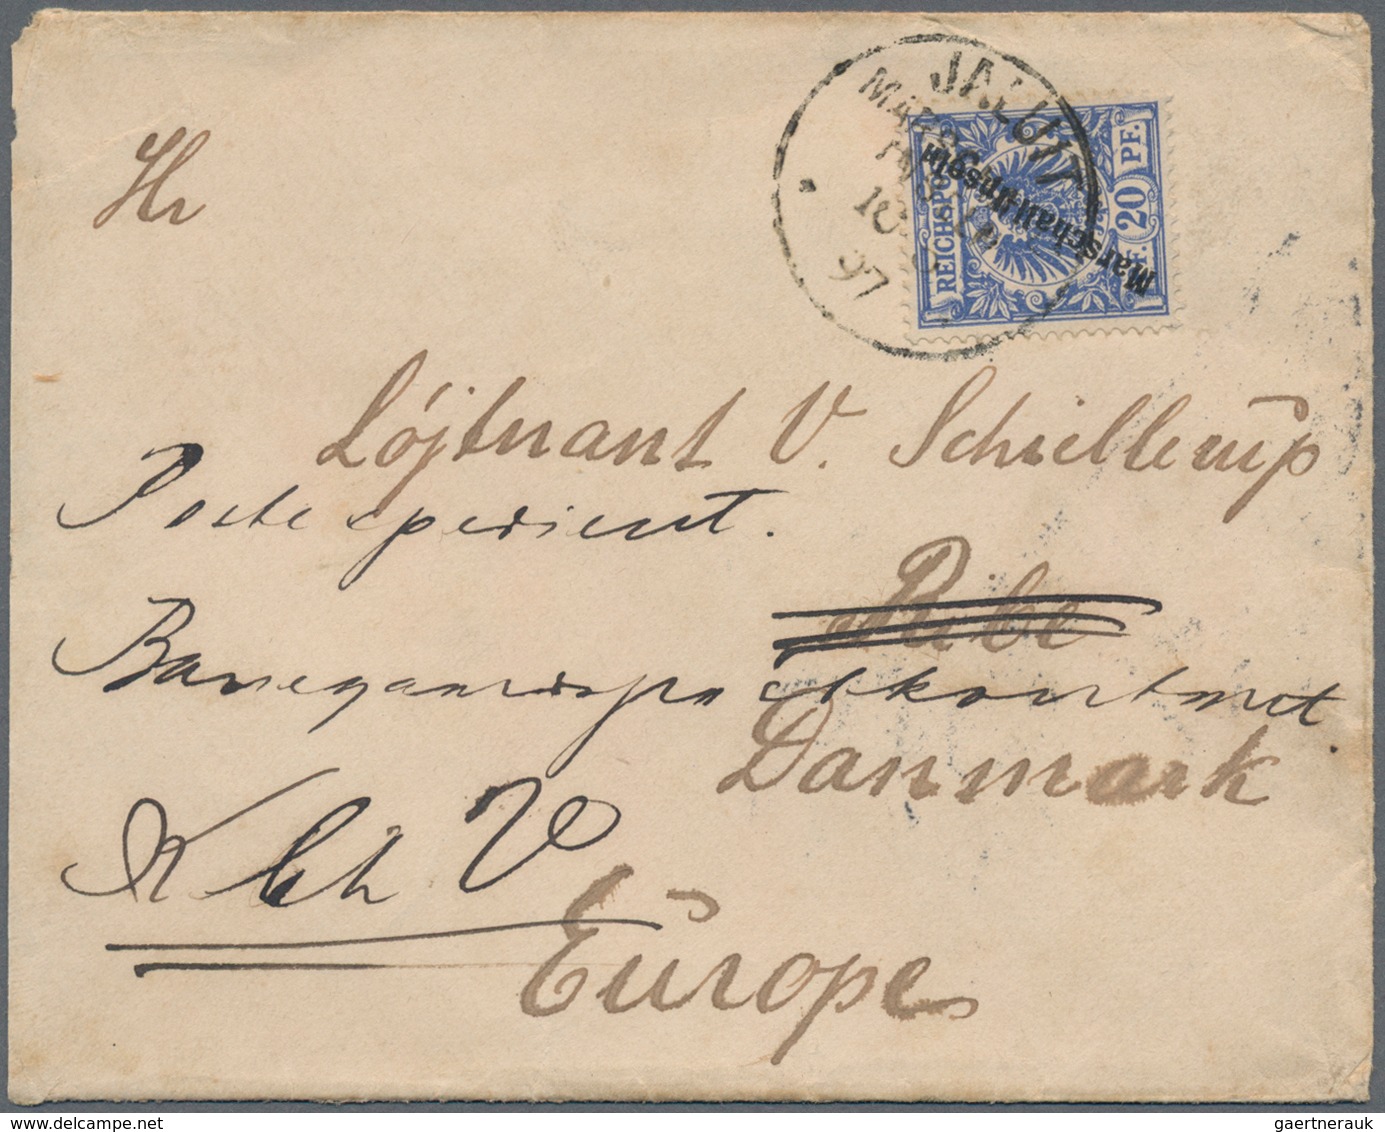 JALUIT
MARSCHALL-INSELN
97
REICHSPOST
PF. 20 PF.
Marschall-Inseln
Hr
Løjtnant V. Schiellerup
Postexpedient.
Ribe
Banegaardspostkontoret.
Danmark
Kbh V
Europe
www.delcampe.net
gaertnerauk